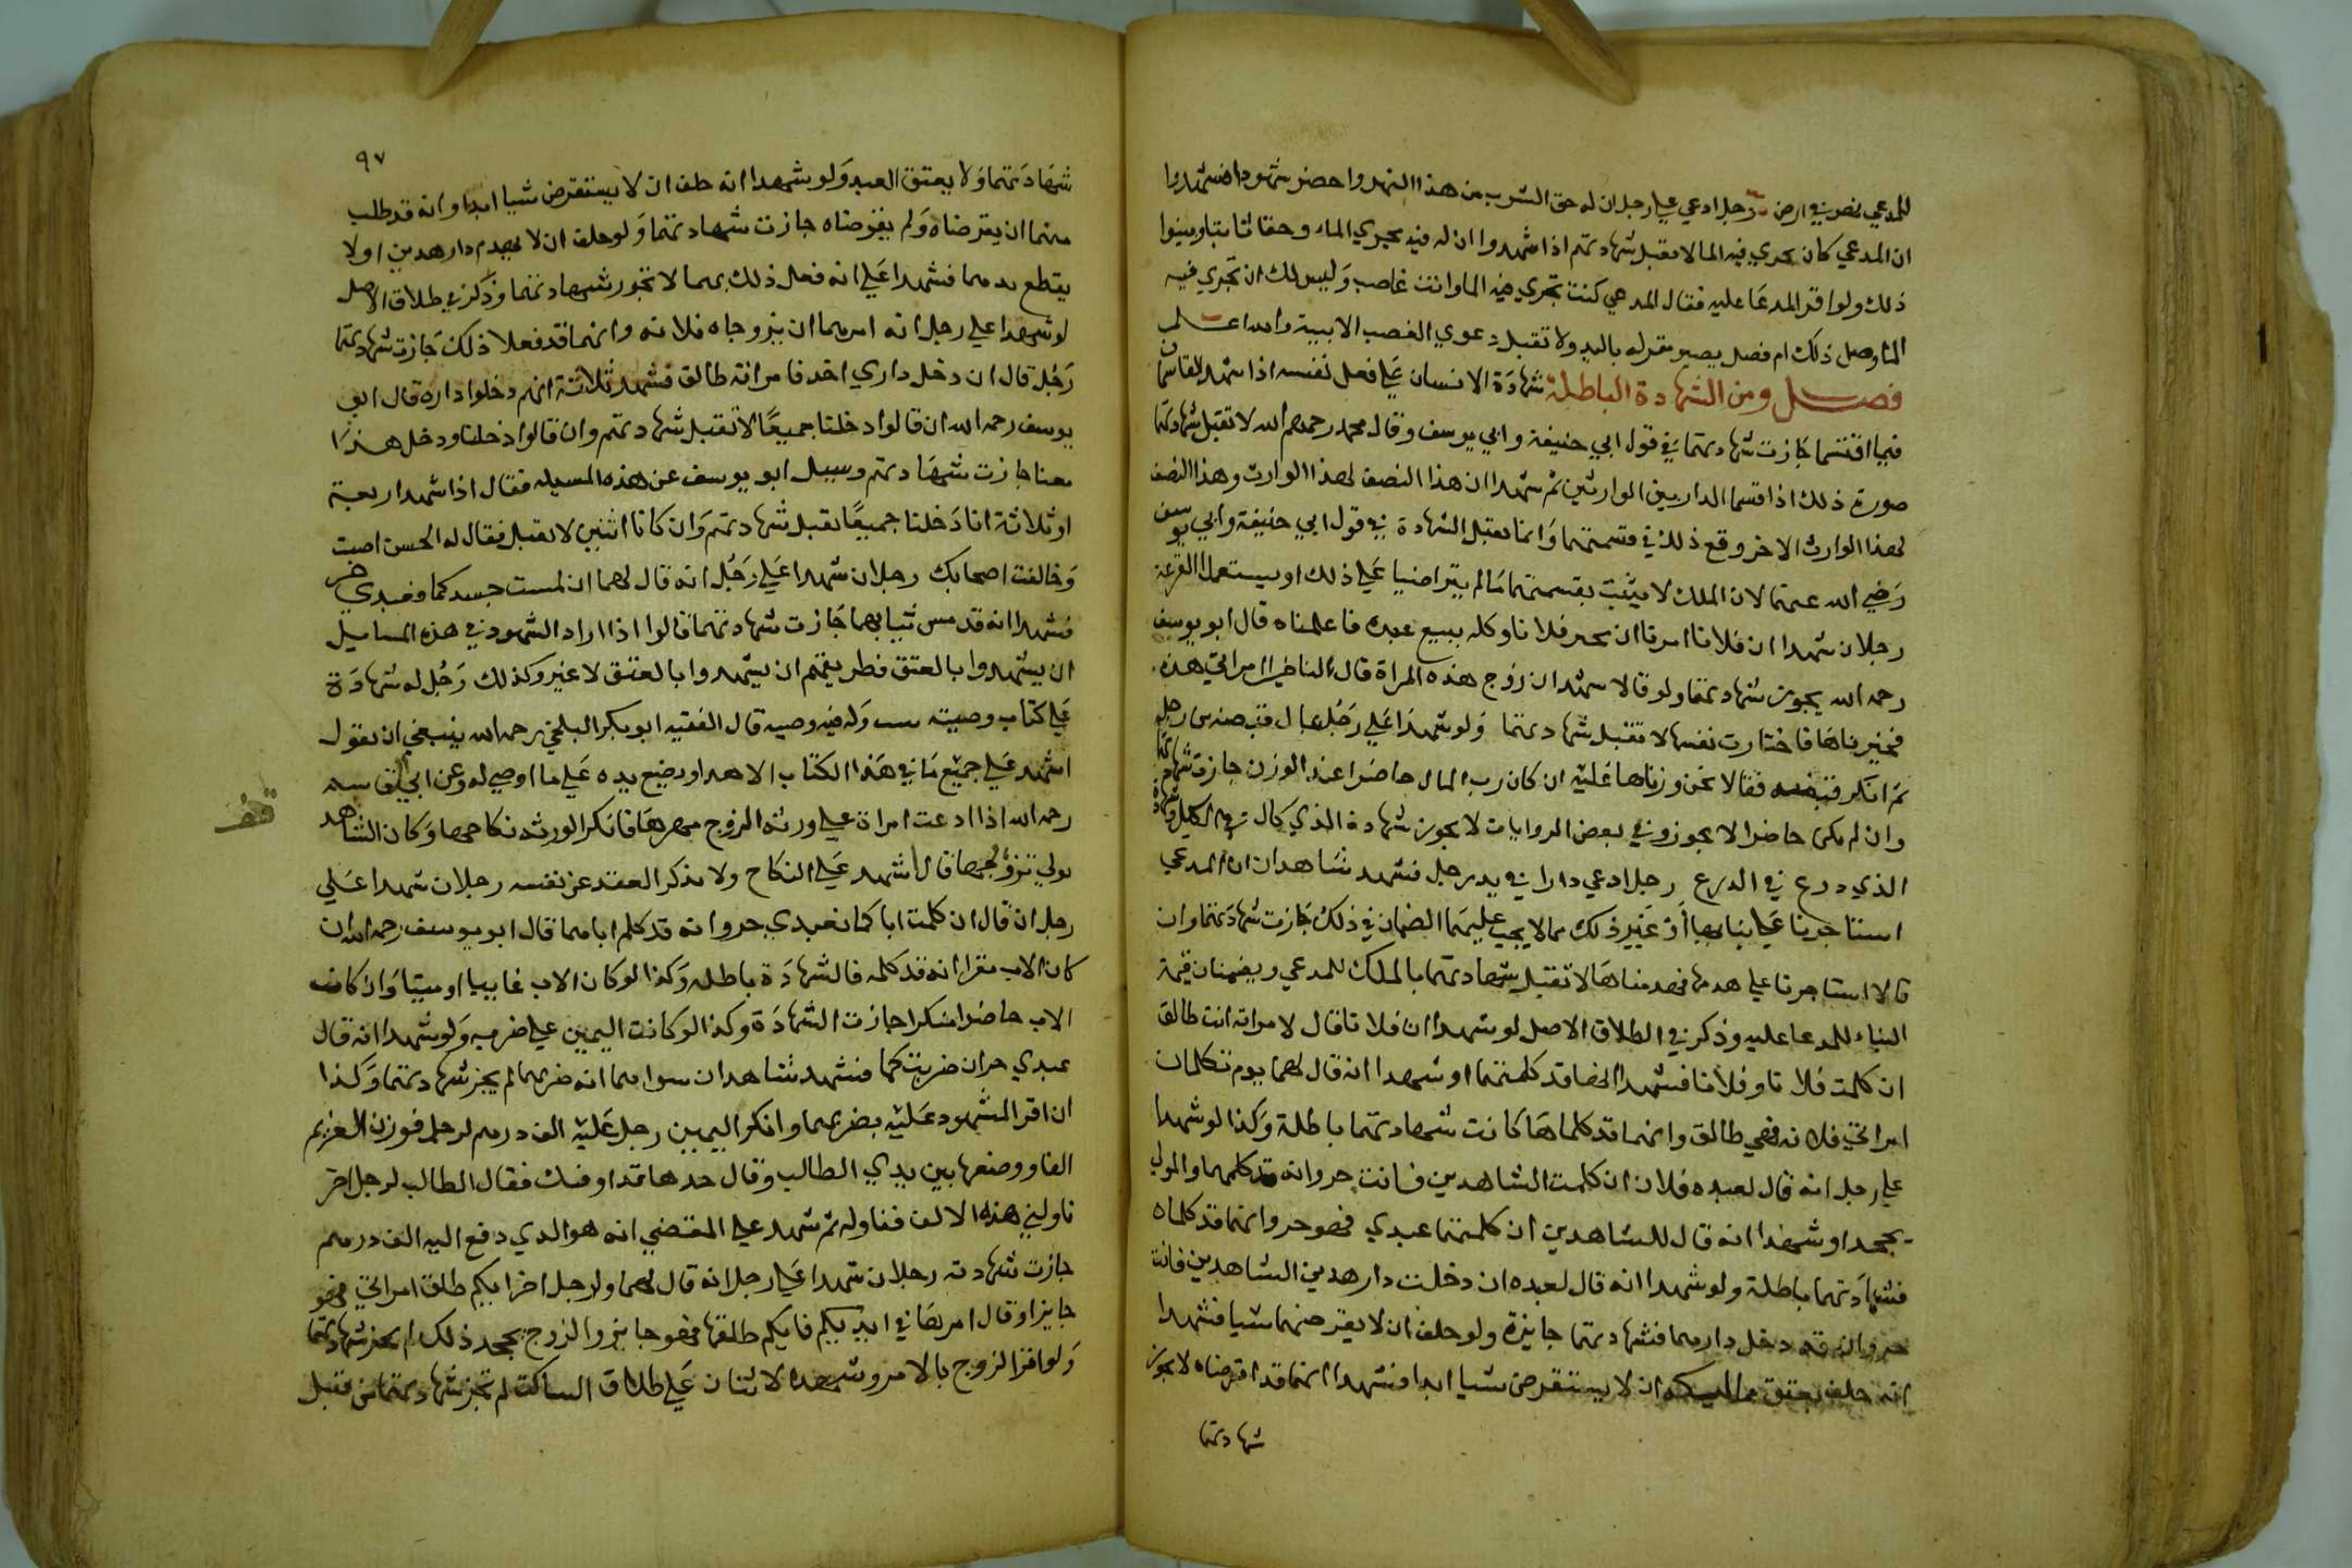 للمدعي نصر في ارض رجل ادعي علي رجل ان له حق الشرب من هذا النهر واحضر شهودا فشهدوا
ان المدعي كان يجري فيه الما لا تقبل شهادتهم اذا شهدوا ان له فيه مجري الماء وحقا ثابتا وبينوا
ذلك ولو اقر المدعا عليه فقال المدعي كنت تجري فيه الما وانت غاصب وليس لك ان تجري فيه
الما وصل ذلك ام فصل يصير مقر له باليد ولا تقبل دعوي الغصب الا ببينة والله اعلم
فصل ومن الشهادة الباطلة شهادة الانسان علي فعل نفسه اذا شهد القاسمان
فيما اقتسما جازت شهادتهما في قول ابي حنيفة وابي يوسف وقال محمد رحمهم الله لا تقبل شهادتهما
صورة ذلك اذا قسما الدار بين الوارثين ثم شهدا ان هذا النصف لهذا الوارث وهذا النصف
لهذا الوارث الاخر وقع ذلك في قسمتهما وانما تقبل الشهادة في قول ابي حنيفة وابي يوسف
رضي الله عنهما لان الملك لا يثبت بقسمتهما مالم يتراضيا علي ذلك او يستعملا القرعة
رجلان شهدا ان فلانا امرنا ان نخبر فلانا وكله ببيع عبده فاعلمناه قال ابو يوسف
رحمه الله يجوز شهادتهما ولو قالا نشهد ان زوج هذه المراة قال لنا خيرا امراتي هذه
فخيرناها فاختارت نفسها لا تقبل شهادتهما ولو شهدا علي رجل بمال قبضه من رجل
ثم انكر قبضه فقالا نحن وزناها عليه ان كان رب المال حاضرا عند الوزن جازت شهادتهما
وان لم يكن حاضرا لا يجوز وفي بعض الروايات لا يجوز شهادة الذي كال في الكيل وشهادة
الذي درع في الدرع رجل ادعي دارا في يد رجل فشهد شاهدان ان المدعي
استاجرنا علي بنايها أو غير ذلك مما لا يجب عليهما الضمان في ذلك جازت شهادتهما وان
قالا استاجرنا علي هدمها فهدمناها لا تقبل شهادتهما بالملك للمدعي ويضمنان قيمة
البناء للمدعا عليه وذكر في الطلاق الاصل لو شهدا ان فلانا قال لامراته انت طالق
ان كلمت فلانا وفلانا فشهدا انها قد كلمتهما او شهدا انه قال لهما يوم تكلمان
امراتي فلانه فهي طالق وانهما قد كلماها كانت شهادتهما باطلة وكذا لو شهدا
علي رجل انه قال لعبده فلان ان كلمت الشاهدين فانت حر وانه قد كلمهما والمولي
يجحد او شهدا انه قال للشاهدين ان كلمتما عبدي فهو حر وانهما قد كلماه
فشهادتهما باطلة ولو شهدا انه قال لعبده ان دخلت دار هدين الشاهدين فانت
حر وانه قد دخل دارهما فشهادتهما جايزة ولو حلف ان لا يقرضهما شيا فشهدا
انه حلف بعتق ان لا يستقرض شيا ابدا فشهدا انهما قد اقرضاه لا يجوز
شهادتهما
٩٧
شهادتهما ولا يعتق العبد ولو شهدا انه حلف ان لا يستقرض شيا ابدا وانه قد طلب
منهما ان يقرضاه ولم يقرضاه جازت شهادتهما ولو حلف ان لا يهدم دار هدين او لا
يقطع يدهما فشهدا علي انه فعل ذلك بهما لا تجوز شهادتهما وذكر في طلاق الاصل
لو شهدا علي رجل انه امرهما ان يزوجاه فلانه وانهما قد فعلا ذلك جازت شهادتهما
رجل قال ان دخل داري احد فامراته طالق فشهد ثلاثة انهم دخلوا داره قال ابو
يوسف رحمه الله ان قالوا دخلنا جميعا لا تقبل شهادتهم وان قالوا دخلنا ودخل هذا
معنا جازت شهادتهم وسيل ابو يوسف عن هذه المسيله فقال اذا شهد اربعة
او ثلاثة انا دخلنا جميعا تقبل شهادتهم وان كانا اثنين لا تقبل فقال له الحسن اصبت
وخالفت اصحابك رجلان شهدا علي رجل انه قال لهما ان لمست جسدكما فعبدي حر
فشهدا انه قد مس ثيابهما جازت شهادتهما قالوا اذا اراد الشهود في هذه المسايل
ان يشهدوا بالعتق فطريقهم ان يشهدوا بالعتق لا غير وكذلك رجل له شهادة
علي كتاب وصيته وله فيه وصيه قال الفقيه ابو بكر البلخي رحمه الله ينبغي ان يقول
اشهد علي جميع ما في هذا الكتاب الا هدا ويضع يده علي ما اوصي له وعن ابي القاسم
رحمه الله اذا ادعت امراة علي ورثة الزوج مهرها فانكر الورثه نكاحها وكان الشاهد
تولي تزويجها قال اشهد علي النكاح ولا يذكر العقد عن نفسه رجلان شهدا علي
رجل ان قال ان كلمت اباكما فعبدي حر وانه قد كلم اباهما قال ابو يوسف رحمه الله ان
كان الاب مقرا انه قد كلمه فالشهادة باطله وكذا لو كان الاب غايبا او ميتا وان كانت
الاب حاضرا منكرا جازت الشهادة وكذا لو كانت اليمين علي ضربه ولو شهدا انه قال
عبدي حر ان ضربتكما فشهد شاهدان سواهما انه ضربهما لم يجز شهادتهما وكذا
ان اقر المشهود عليه بضربهما وانكر اليمين رجل عليه الف درهم لرجل فوزن الغريم
الفا ووضعها بين يدي الطالب وقال خدها فقد اوفيتك فقال الطالب لرجل اخر
ناولني هذه الالف فناوله ثم شهد علي المقتضي انه هو الدي دفع اليه الف درهم
جازت شهادته رجلان شهدا علي رجل انه قال لهما ولرجل اخر ايكم طلق امراتي فهو
جايز او قال امرها في ايديكم فايكم طلقها فهو جايز والزوج يجحد ذلك لم يجز شهادتهما
ولو اقر الزوج بالامر وشهد الاثنان علي طلاق الساكت لم تجز شهادتهما من قبل
قف